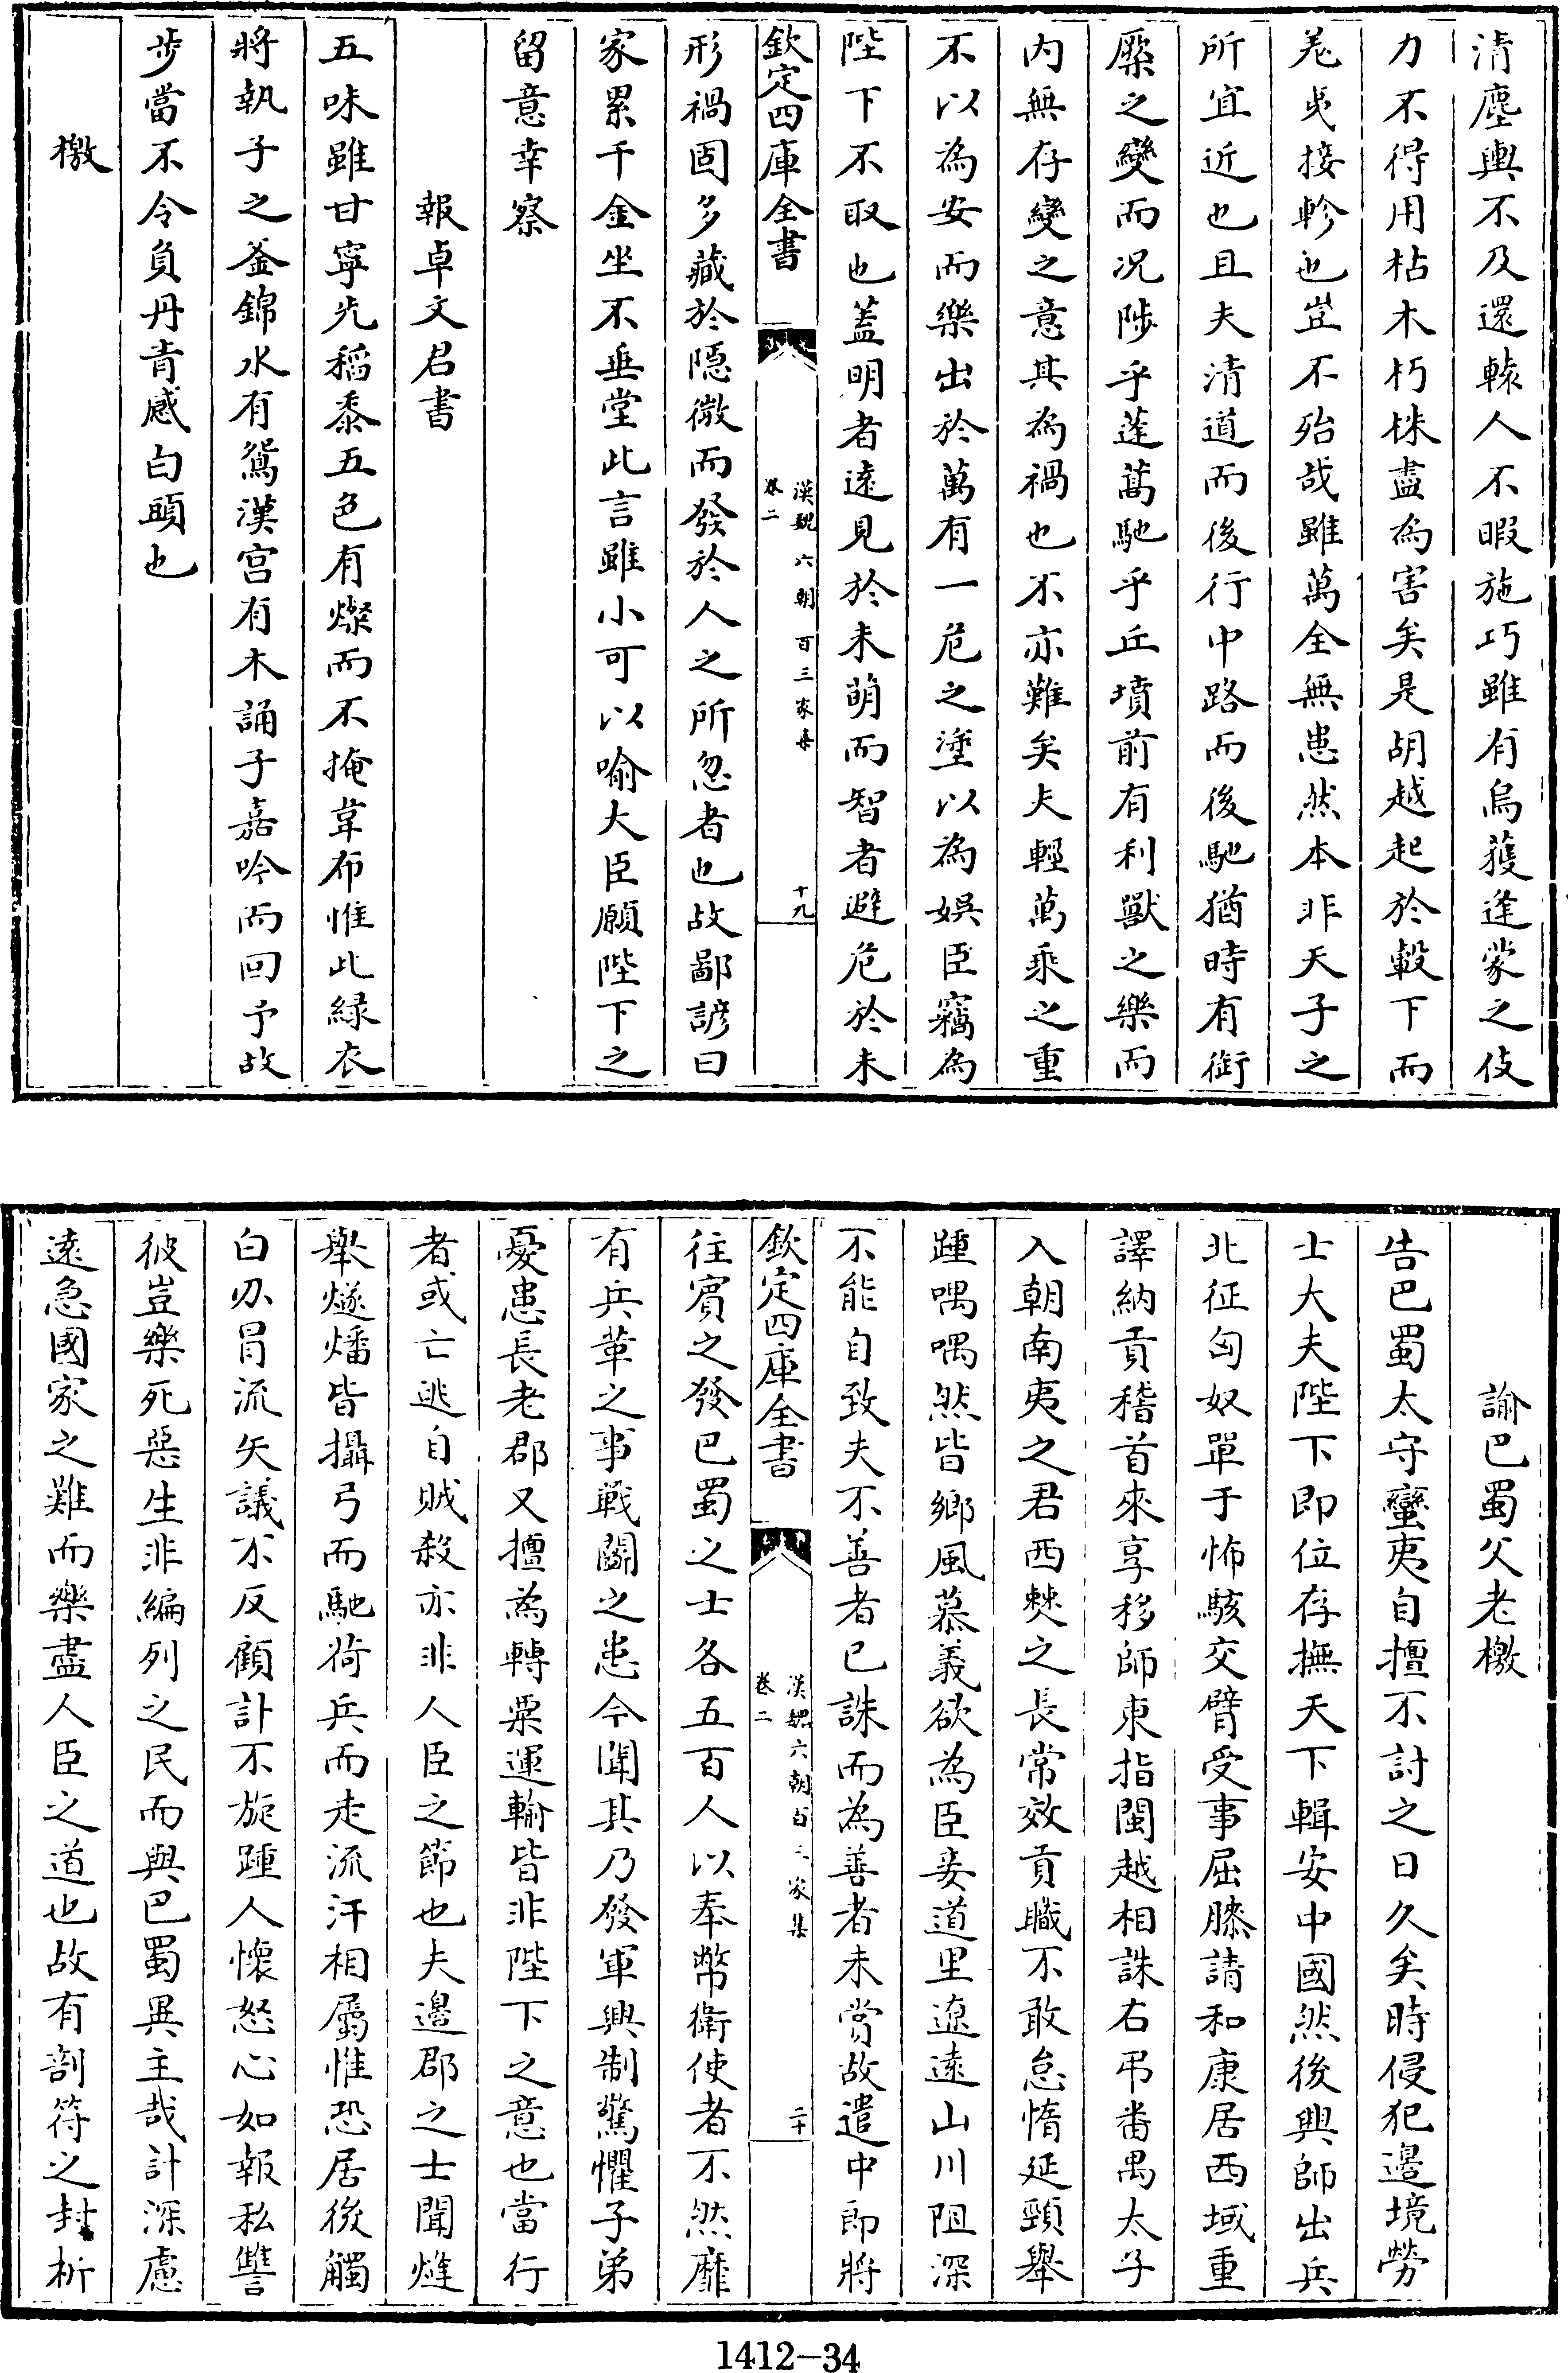 清塵輿不及還轅人不暇施巧雖有烏獲逢蒙之伎
力不得用枯木朽株盡為害矣是胡越起於轂下而
羌夷接軫也豈不殆哉雖萬全無患然本非天子之
所宜近也且夫清道而後行中路而後馳猶時有銜
橜之變而況陟乎蓬蒿馳乎丘墳前有利獸之樂而
内無存變之意其為禍也不亦難矣夫輕萬乘之重
不以為安而樂出於萬有一危之塗以為娯臣竊為
陛下不取也蓋明者遠見於未萌而智者避危於未
欽定四庫全書
漢魏六朝百三家集
卷二
十九
形禍固多藏於隱微而發於人之所忽者也故鄙諺曰
家累千金坐不垂堂此言雖小可以喻大臣願陛下之
留意幸察
報卓文君書
五味雖甘寧先稻黍五色有燦而不掩韋布惟此緑衣
將執子之釜錦水有鴛漢宫有木誦子嘉吟而回予故
步當不令負丹青感白頭也
檄
諭巴蜀父老檄
告巴蜀太守蠻夷自擅不討之日久矣時侵犯邊境勞
士大夫陛下即位存撫天下輯安中國然後興師出兵
北征匈奴單于怖駭交臂受事屈膝請和康居西域重
譯納貢稽首來享移師東指閩越相誅右弔番禺太子
入朝南夷之君西僰之長常效貢職不敢怠惰延頸舉
踵喁喁然皆鄉風慕義欲為臣妾道里遼遠山川阻深
不能自致夫不善者已誅而為善者未賞故遣中郎將
欽定四庫全書
漢魏六朝百三家集
卷二
二十
往賓之發巴蜀之士各五百人以奉幣衛使者不然靡
有兵革之事戰鬭之患今聞其乃發軍興制驚懼子弟
憂患長老郡又擅為轉粟運輸皆非陛下之意也當行
者或亡逃自賊殺亦非人臣之節也夫邊郡之士聞㷭
舉燧燔皆攝弓而馳荷兵而走流汗相屬惟恐居後觸
白刃冒流矢議不反顧計不旋踵人懷怒心如報私讐
彼豈樂死惡生非編列之民而與巴蜀異主哉計深慮
遠急國家之難而樂盡人臣之道也故有剖符之封析
1412-34